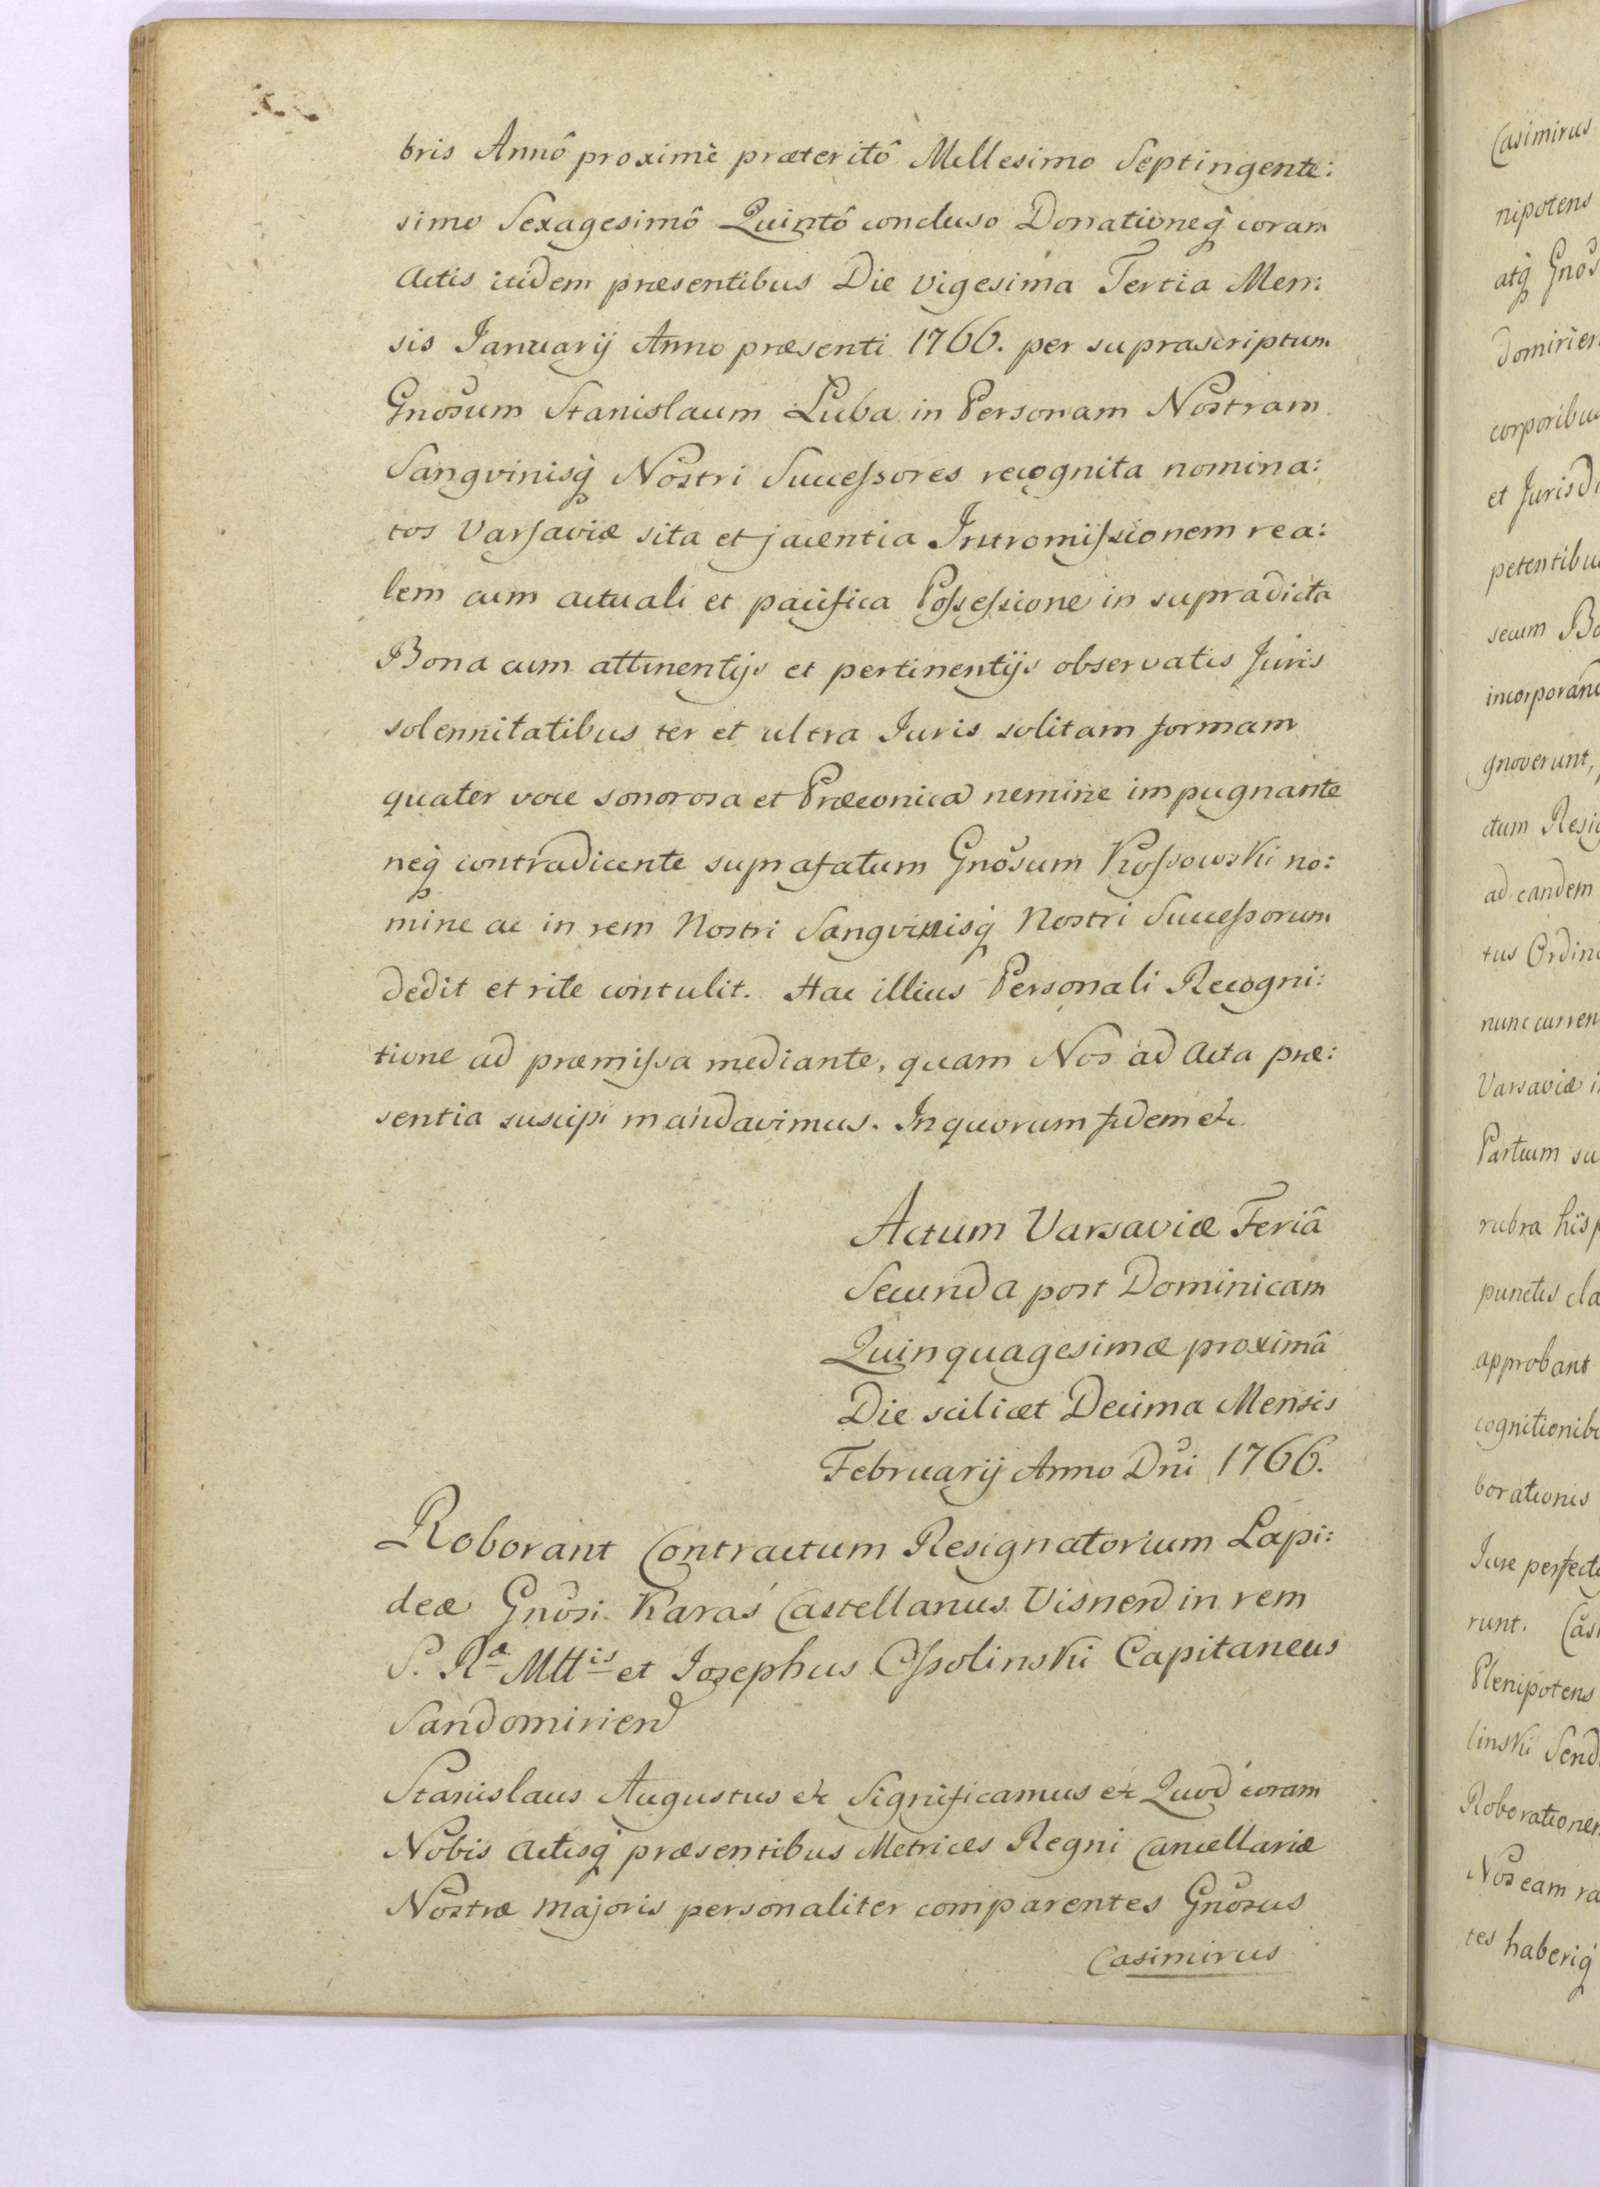 bris Annô proximè præteritô Millesimo Septingente:
simo Sexagesimô Quintô concluso Donationeq̃ coram
Actis itidem præsentibus Die vigesima Tertia Men:
sis Januarij Anno præsenti 1766. per suprascriptum
Gnosum Stanislaum Luba in Personam Nostram
Sangvinisq̃ Nostri Successores recognita nomina:
tos Varsaviæ sita et jacentia Intromissionem rea:
lem cum actuali et pacifica Possessione in supradicta
Bona cum attinentijs et pertinentijs observatis Juris
solennitatibus ter et ultra Juris solitam formam
quater voce sonorosa et Præconica nemine impugnante
neq̃ contradicente suprafatum Gnosum Kossowski no:
mine ac in rem Nostri Sangvinisq̃ Nostri Successorum
dedit et rite contulit. Hac illius Personali Recogni:
tione ad præmissa mediante, quam Nos ad Acta præ:
sentia suscipi mandavimus. In quorum fidem etc.
Actum Varsaviæ Feriâ
Secunda post Dominicam
Quinquagesimæ proximâ
Die scilicet Decima Mensis
Februarij Anno Dni 1766.
Roborant Contractum Resignatorium Lapi:
deæ Gnosi Karaś Castellanus Visnen in rem
S. Ræ Mttis et Josephus Ossolinski Capitaneus
Sandomirien
Stanislaus Augustus etc Significamus etc Quod coram
Nobis Actisq̃ præsentibus Metrices Regni Cancellariæ
Nostræ Majoris personaliter comparentes Gnosus
Casimirus
Casimirus
nipotens
atq̃ Gnos
domirien
corporibus
et Jurisdi
petentibu
secum Bo
incorporand
gnoverunt,
ctum Resig
ad eandem
tus Ordin
nunc curren
Varsaviæ i
Partium su
rubra hisp
punctis cla
approbant
cognitionib
borationis
Jure perfect
runt. Cas
Plenipotens
linski Send
Roborationem
Nos eam ra
tes haberiq̃